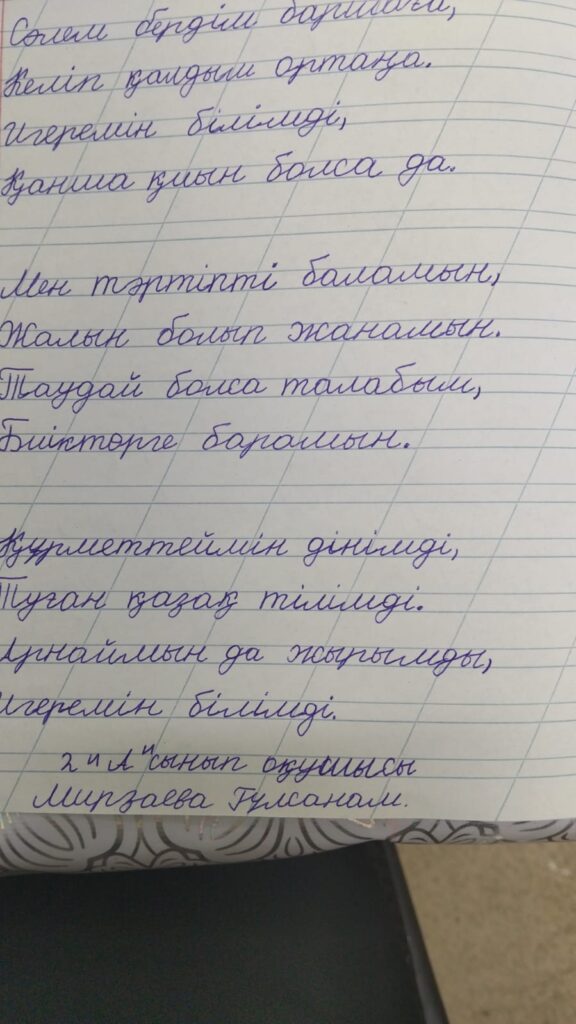 Сәлем бердім баршаңа,
Келіп қалдым ортаңа.
Игеремін білімді,
Қанша қиын болса да.
Мен тәртіпті баламын,
Жалын болып жанамын.
Таудай болса талабым,
Биіктерге барамын.
Құрметтеймін дінімді,
Туған қазақ тілімді.
Арнаймын да жырымды,
Игеремін білімді.
2 "А" сынып оқушысы
Мирзаева Гулсанам.